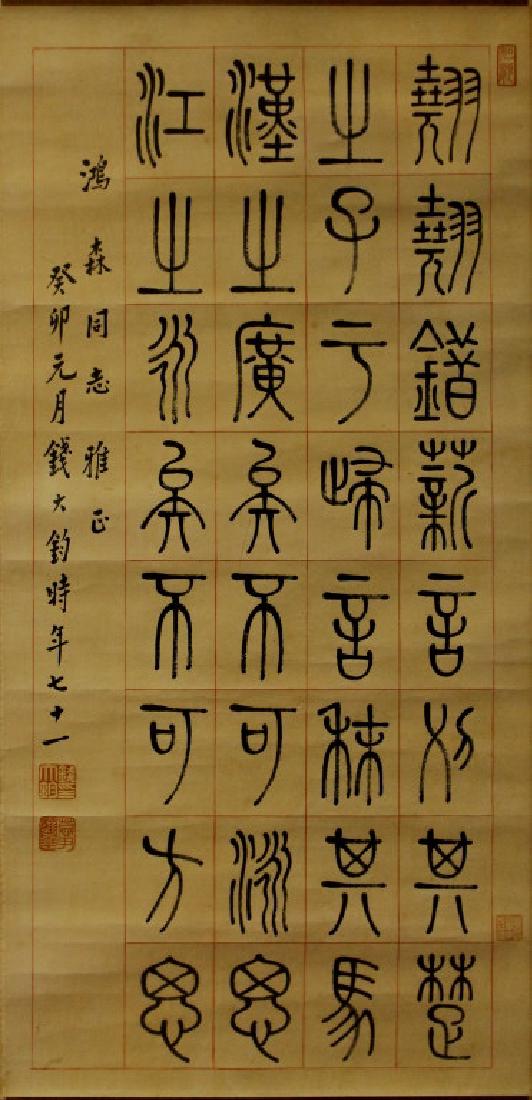 翹翹錯薪言刈其楚
之子于歸言秣其馬
漢之廣矣不可泳思
江之永矣不可方思
鴻森同志雅正
癸卯元月錢大鈞時年七十一